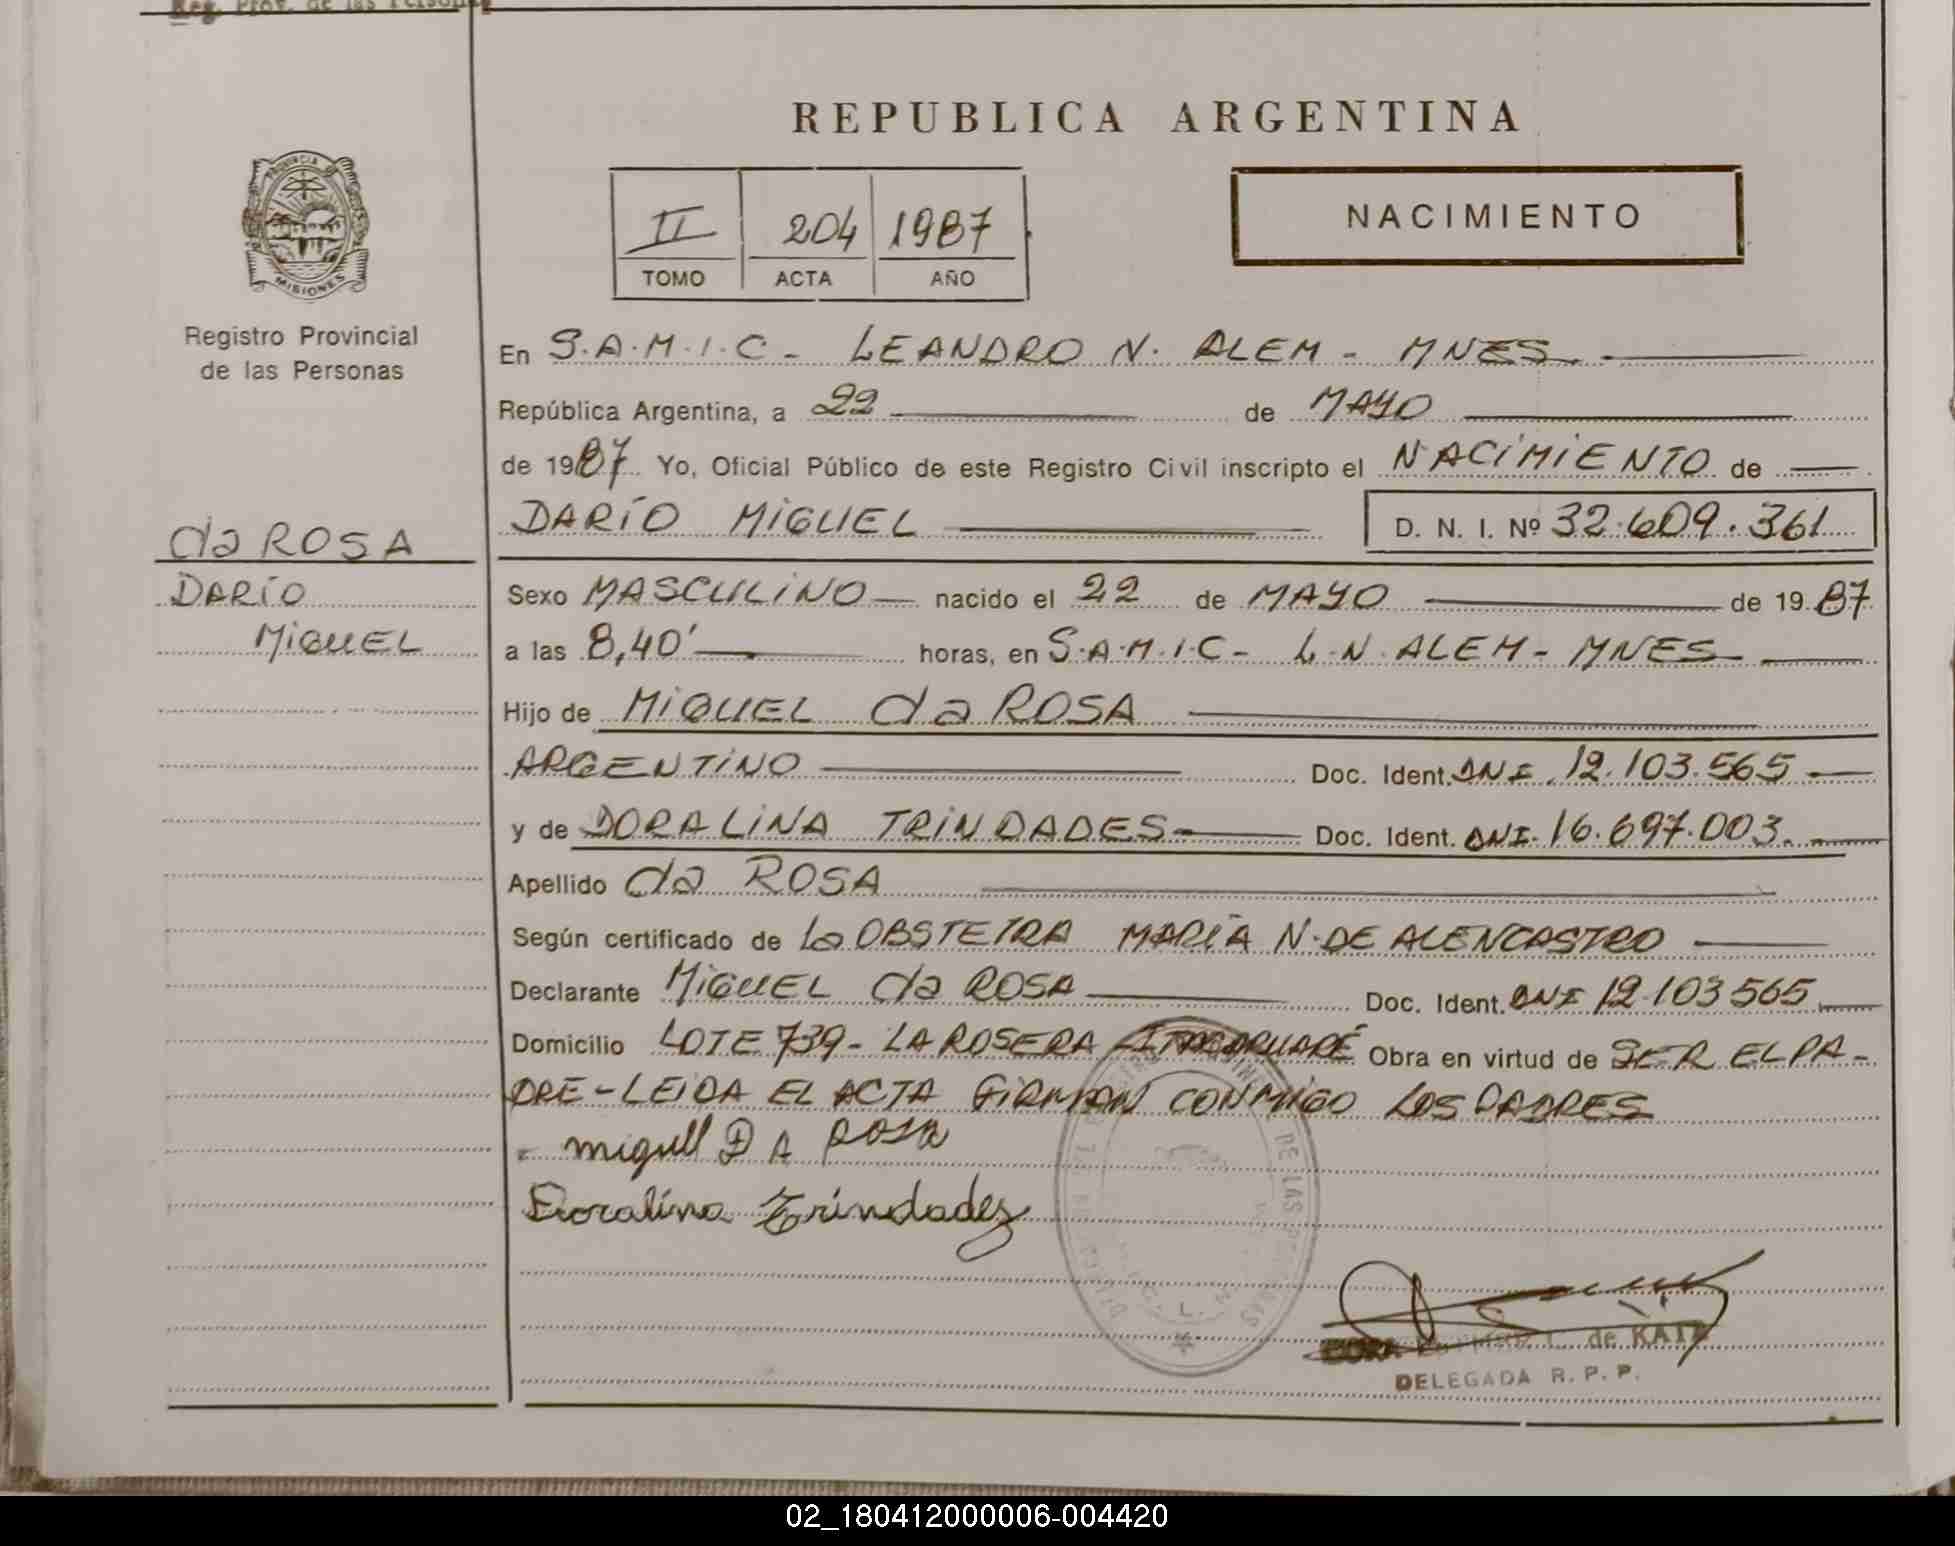 Reg. Prov. de las Personas
REPUBLICA ARGENTINA
PROVINCIA DE
MISIONES
II 204 1987
TOMO ACTA AÑO
NACIMIENTO
Registro Provincial
de las Personas
En S.A.M.I.C - LEANDRO N. ALEM - MNES
República Argentina, a 22 de MAYO
de 1987 Yo, Oficial Público de este Registro Civil inscripto el NACIMIENTO de
DARÍO MIGUEL D. N. I. Nº 32.609.361
da ROSA
DARÍO
MIGUEL
Sexo MASCULINO nacido el 22 de MAYO de 1987
a las 8,40' horas, en S.A.M.I.C - L.N. ALEM - MNES
Hijo de MIGUEL da ROSA
ARGENTINO Doc. Ident. DNI. 12.103.565
y de DORALINA TRINDADES Doc. Ident. DNI. 16.697.003.
Apellido da ROSA
Según certificado de La OBSTETRA MARÍA N. DE ALENCASTRO
Declarante MIGUEL da ROSA Doc. Ident. DNI 12.103565
Domicilio LOTE 739 - LA ROSERA - ITACARUARÉ Obra en virtud de SER EL PA-
DRE - LEIDA EL ACTA FIRMAN CONMIGO LOS PADRES
miguel D A ROSA
Doralina Trindades
DE LAS PERSONAS
L. N.
C. de
DELEGADA R. P. P.
02_180412000006-004420